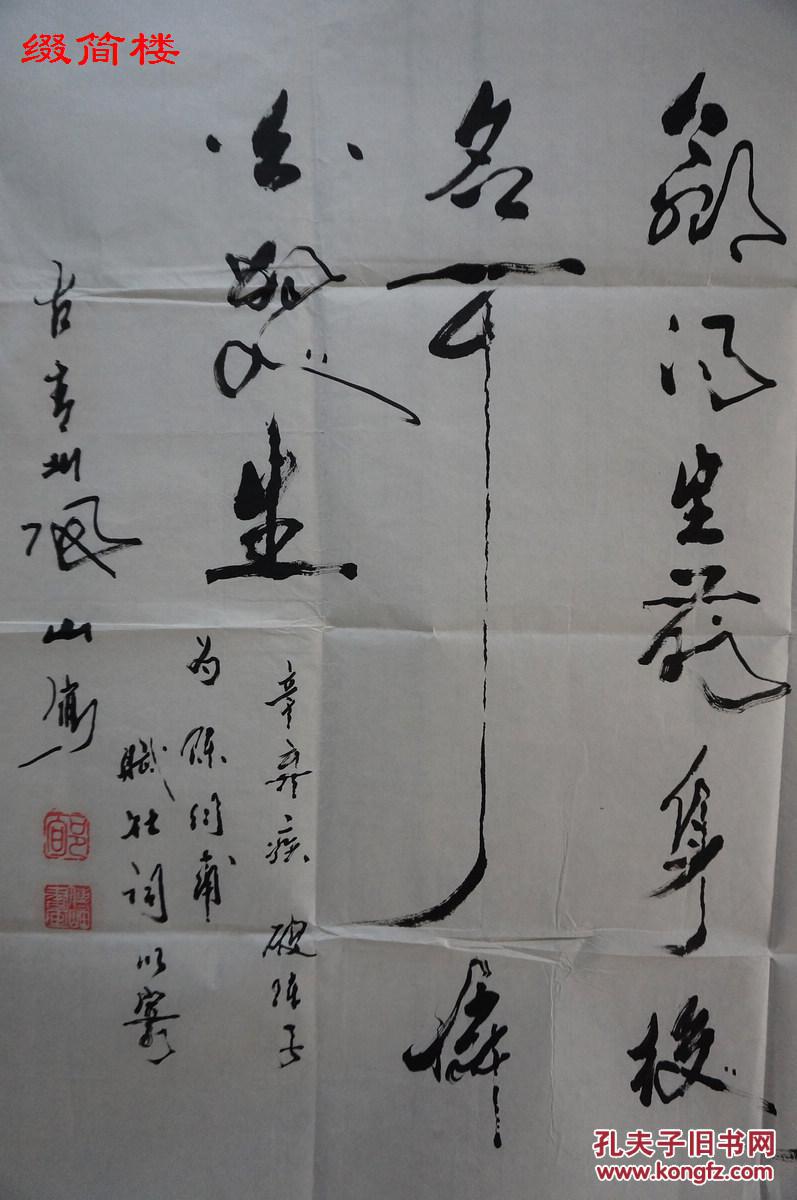 缀简楼
赢得生前身后
名可怜
白发生
辛弃疾 破阵子
为陈同甫
赋壮词以寄
古青州
山
孔夫子旧书网
www.kongfz.com